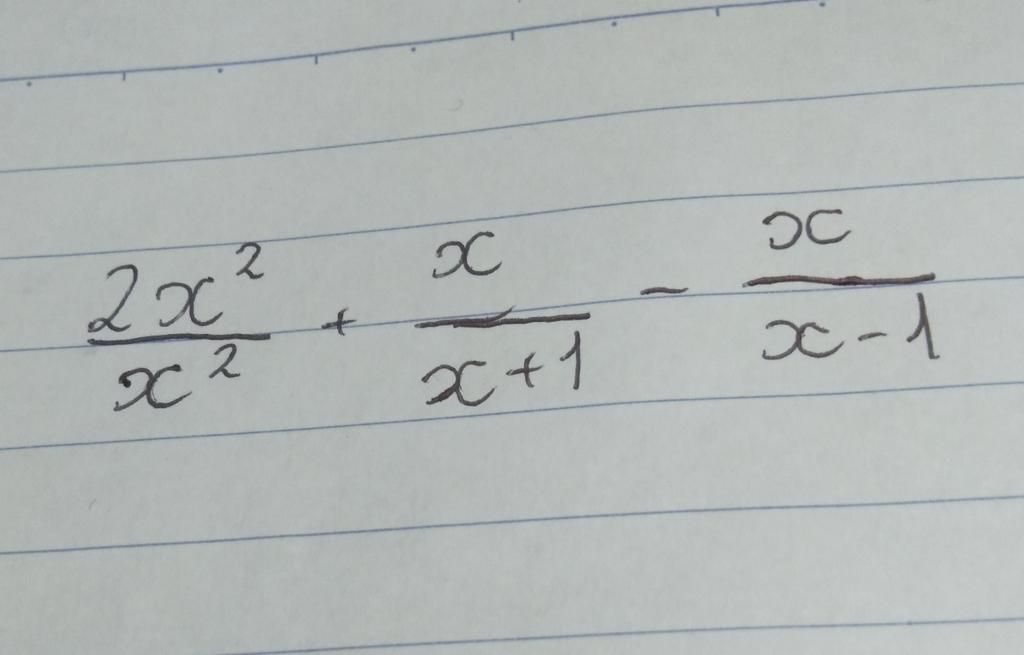 \frac{2x^2}{x^2} + \frac{x}{x+1} - \frac{x}{x-1}